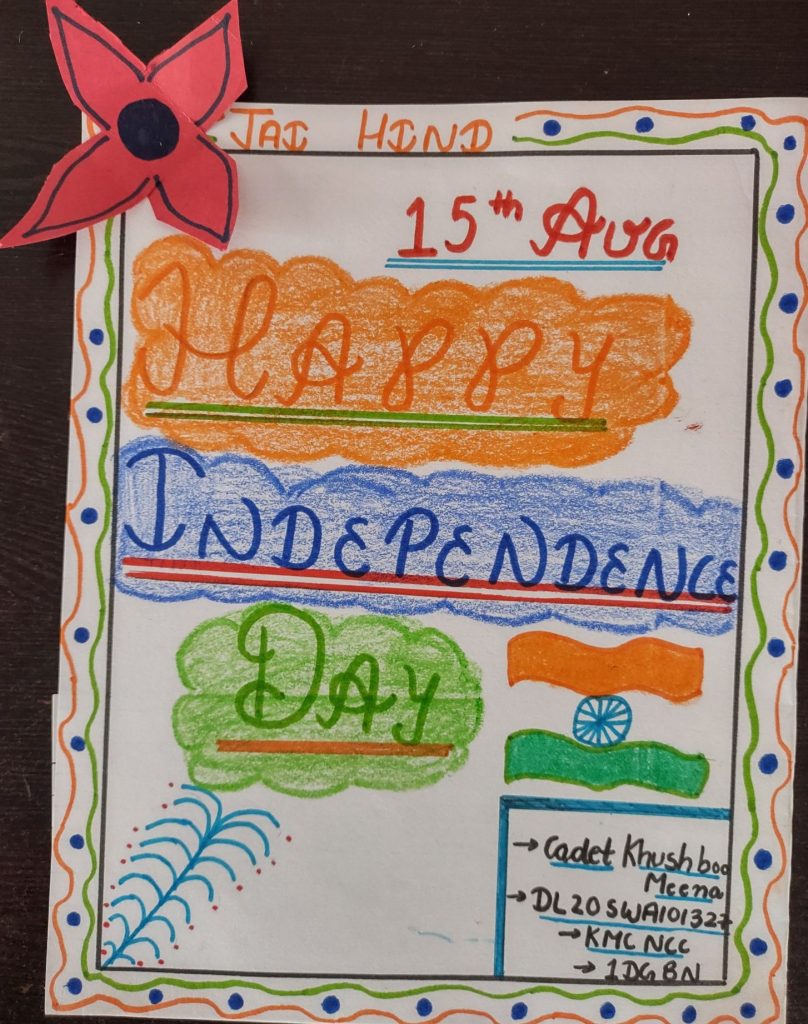 JAI HIND
15th AUG
HAPPY
INDEPENDENCE
DAY
→ Cadet Khushboo
Meena
→ DL20SWA101327
→ KMC NCC
→ 1DGBN